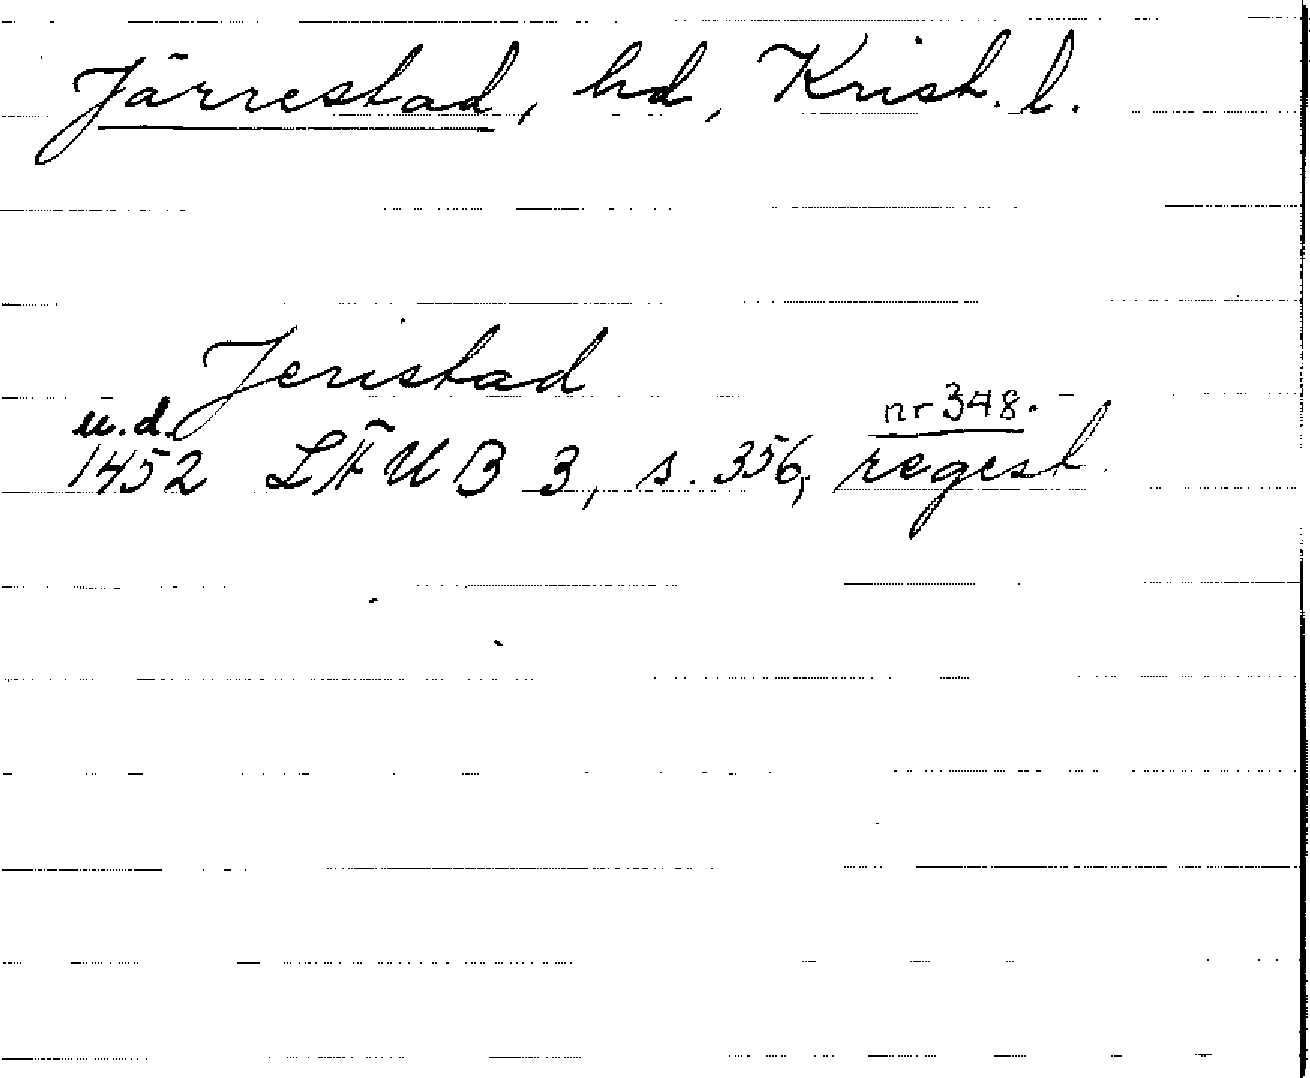 Järrestad, hd, Krist. l.
Jeristad
u.d. nr 348.
1452 LÄUB 3, s. 356, regest.